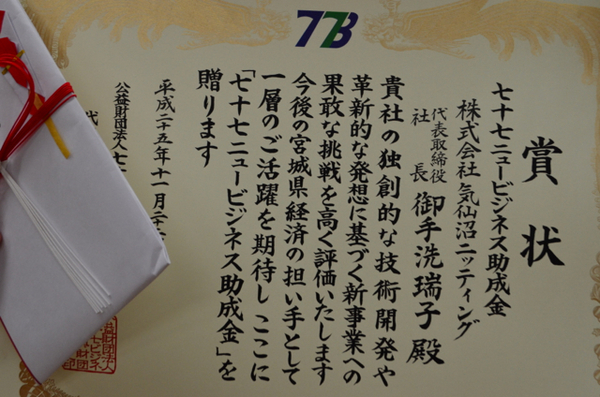 77B
賞状
七十七ニュービジネス助成金
株式会社気仙沼ニッティング
代表取締役
社長
御手洗瑞子殿
貴社の独創的な技術開発や
革新的な発想に基づく新事業への
果敢な挑戦を高く評価いたします
今後の宮城県経済の担い手として
一層のご活躍を期待しここに
「七十七ニュービジネス助成金」を
贈ります
平成二十五年十一月二十
公益財団法人七
代